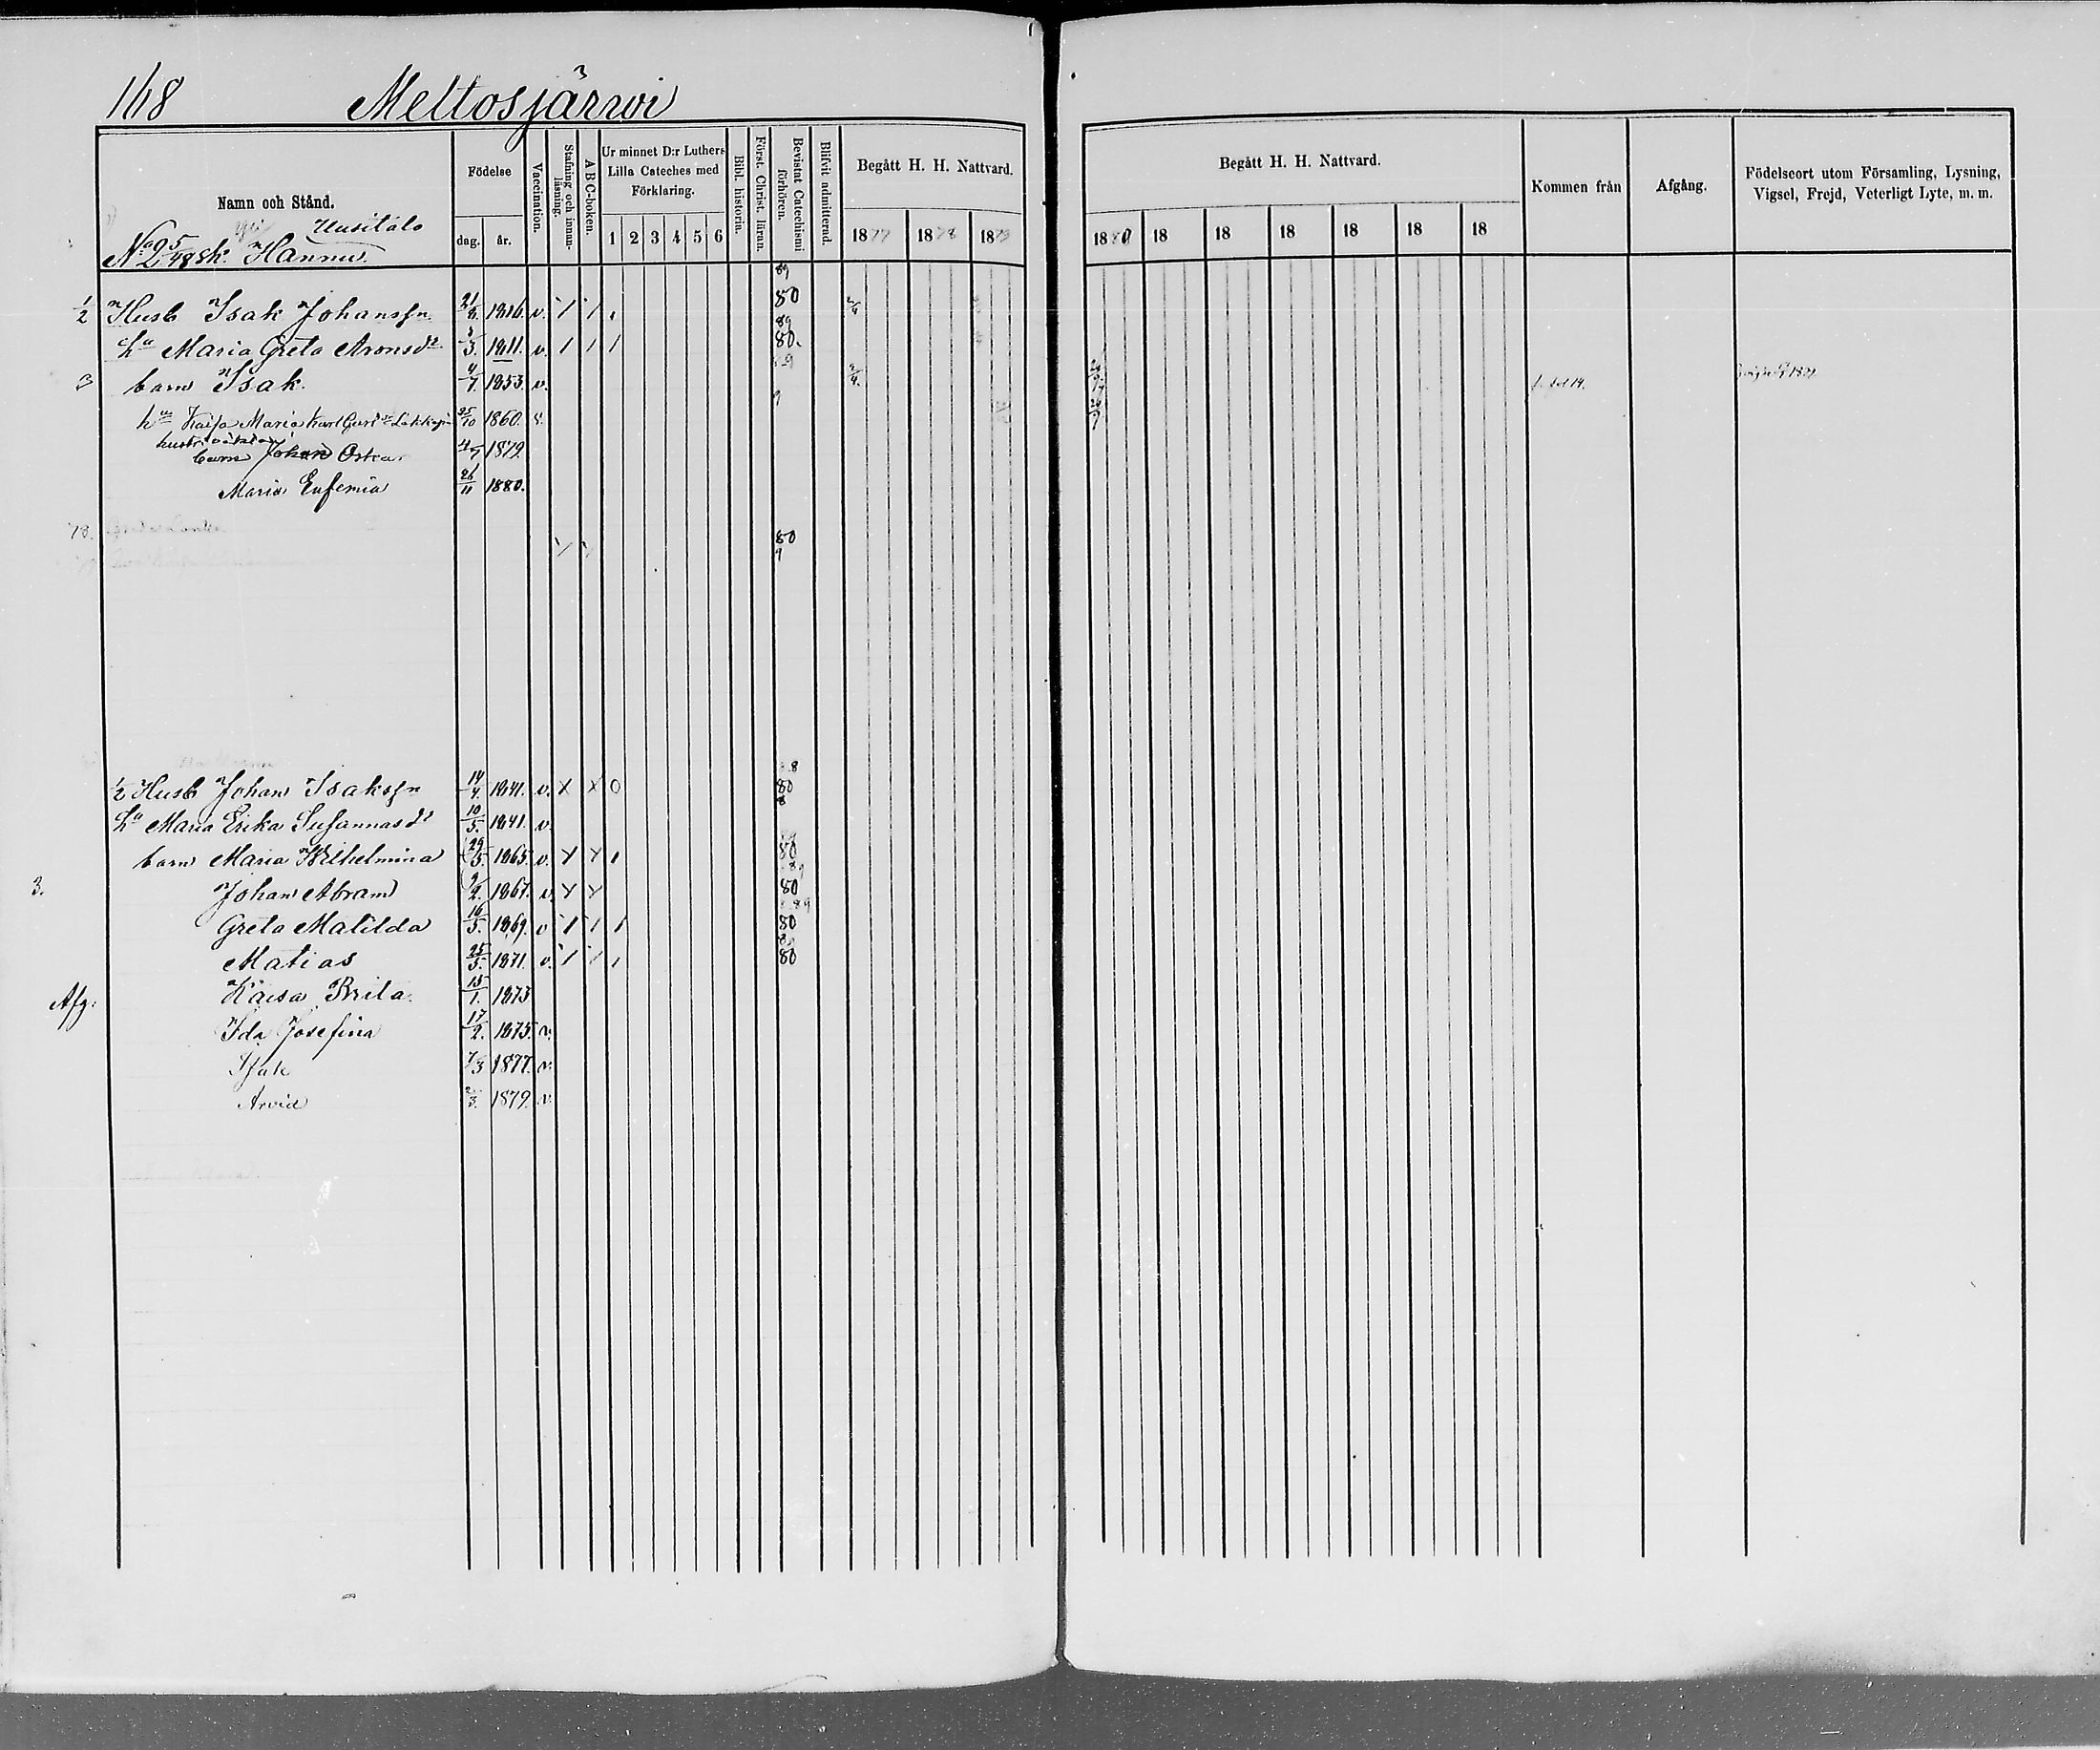 168 Meltosjärwi
Namn och Stånd.
Födelse
dag. år.
Vaccination.
Stafning och innanläsning.
A B C-boken.
Ur minnet D:r Luthers Lilla Cateches med Förklaring.
1 2 3 4 5 6
Bibl. historia.
Först. Christ. läran.
Bevistat Catechismi förhören.
Blifvit admitterad.
Begått H. H. Nattvard.
1877 1878 1879
Begått H. H. Nattvard.
1880 18 18 18 18 18 18
Kommen från
Afgång.
Födelseort utom Församling, Lysning, Vigsel, Frejd, Veterligt Lyte, m. m.
Uusitalo
Hannu
1/2 Husb Isak Johanssn 1816. v. 80
hu Maria Greta Aronsdr 1811. v. 80.
3 barn Isak. 4/7. 1853. v.
hu Kaisa Maria 25/10 1860.
barn Johan Oskar 1879.
Maria Eufemia 26/11 1880.
78. 80
1/2 Husb Johan Isakssn 14/4. 1841. v. x x 0 80
hu Maria Erika Susannasdr 10/5. 1841. v.
barn Maria Wilhelmina 29/5. 1865. v. 80
3. Johan Abram 9/2. 1867. v. 80
Greta Matilda 16/5. 1869. v 80
Matias 25/5. 1871. v. 80
Afg. Kaisa Brita. 15/1. 1873
Ida Josefina 17/2. 1875. v.
Isak 7/3 1877. v.
Arvid 1879. v.